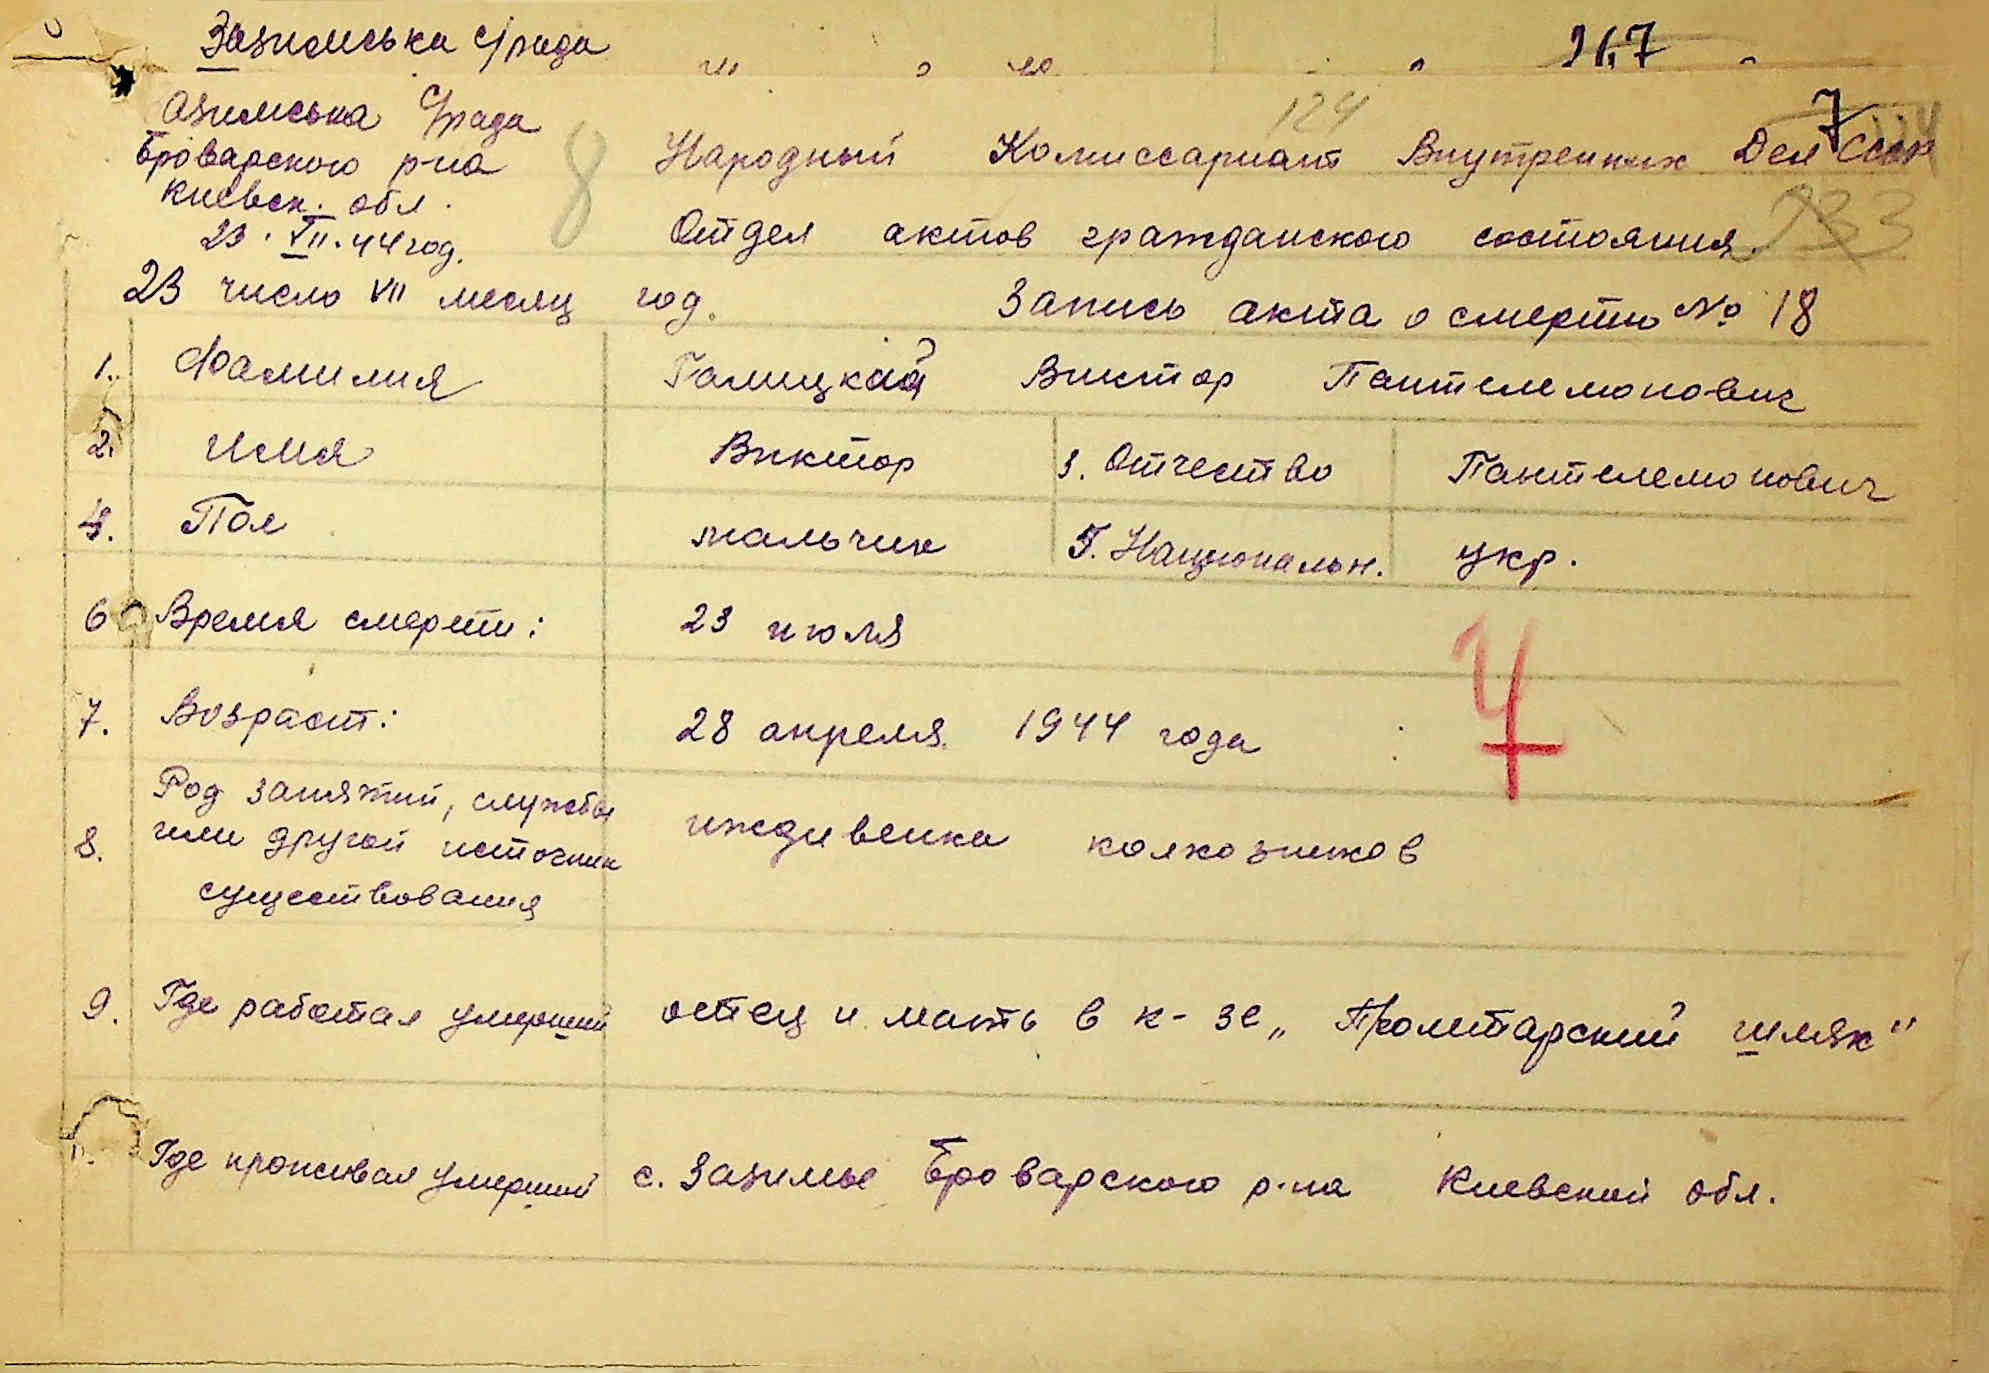 Зазимська с/рада
967
азимська с/рада
Броварского р-на
Киевск. обл.
23.VII.44 год.
124
7
8
Народный Комиссариат Внутренних Дел СССР
Отдел актов гражданского состояния
33
23 число VII месяц год. Запись акта о смерти № 18
1. Фамилия Галицкий Виктор Пантелемонович
2. Имя Виктор 3. Отчество Пантелемонович
4. Пол мальчик 5. Национальн. укр.
6 Время смерти: 23 июля
7. Возраст: 28 апреля 1944 года
Ч
8. Род занятий, службы
или другой источник
существования
иждивенка колхозников
9. Где работал умерший отец и мать в к-зе „Пролитарский шлях"
Где проживал умерший с. Зазимье Броварского р-на Киевской обл.